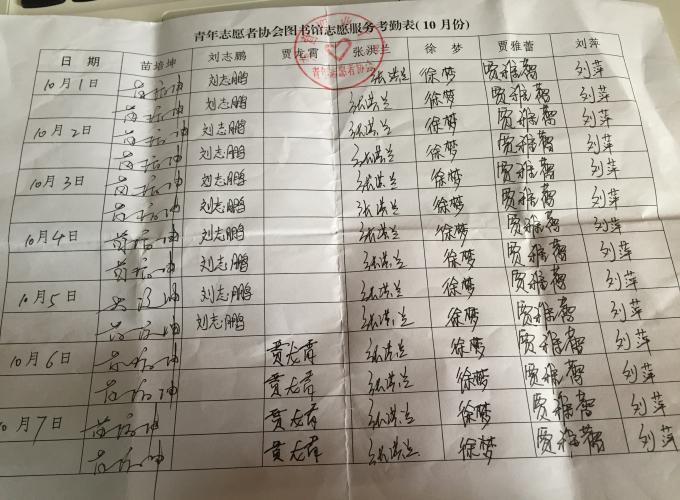 青年志愿者协会图书馆志愿服务考勤表(10月份)
青年志愿者协会
日 期 苗培坤 刘志鹏 贾龙霄 张洪兰 徐 梦 贾雅蕾 刘萍
10月1日 苗培坤 刘志鹏 张洪兰 徐梦 贾雅蕾 刘萍
苗培坤 刘志鹏 张洪兰 徐梦 贾雅蕾 刘萍
10月2日 苗培坤 刘志鹏 张洪兰 徐梦 贾雅蕾 刘萍
苗培坤 刘志鹏 张洪兰 徐梦 贾雅蕾 刘萍
10月3日 苗培坤 刘志鹏 张洪兰 徐梦 贾雅蕾 刘萍
苗培坤 刘志鹏 张洪兰 徐梦 贾雅蕾 刘萍
10月4日 苗培坤 刘志鹏 张洪兰 徐梦 贾雅蕾 刘萍
苗培坤 刘志鹏 张洪兰 徐梦 贾雅蕾 刘萍
10月5日 苗培坤 刘志鹏 张洪兰 徐梦 贾雅蕾 刘萍
苗培坤 刘志鹏 张洪兰 徐梦 贾雅蕾 刘萍
10月6日 苗培坤 贾龙霄 张洪兰 徐梦 贾雅蕾 刘萍
苗培坤 贾龙霄 张洪兰 徐梦 贾雅蕾 刘萍
10月7日 苗培坤 贾龙霄 张洪兰 徐梦 贾雅蕾 刘萍
苗培坤 贾龙霄 张洪兰 徐梦 贾雅蕾 刘萍